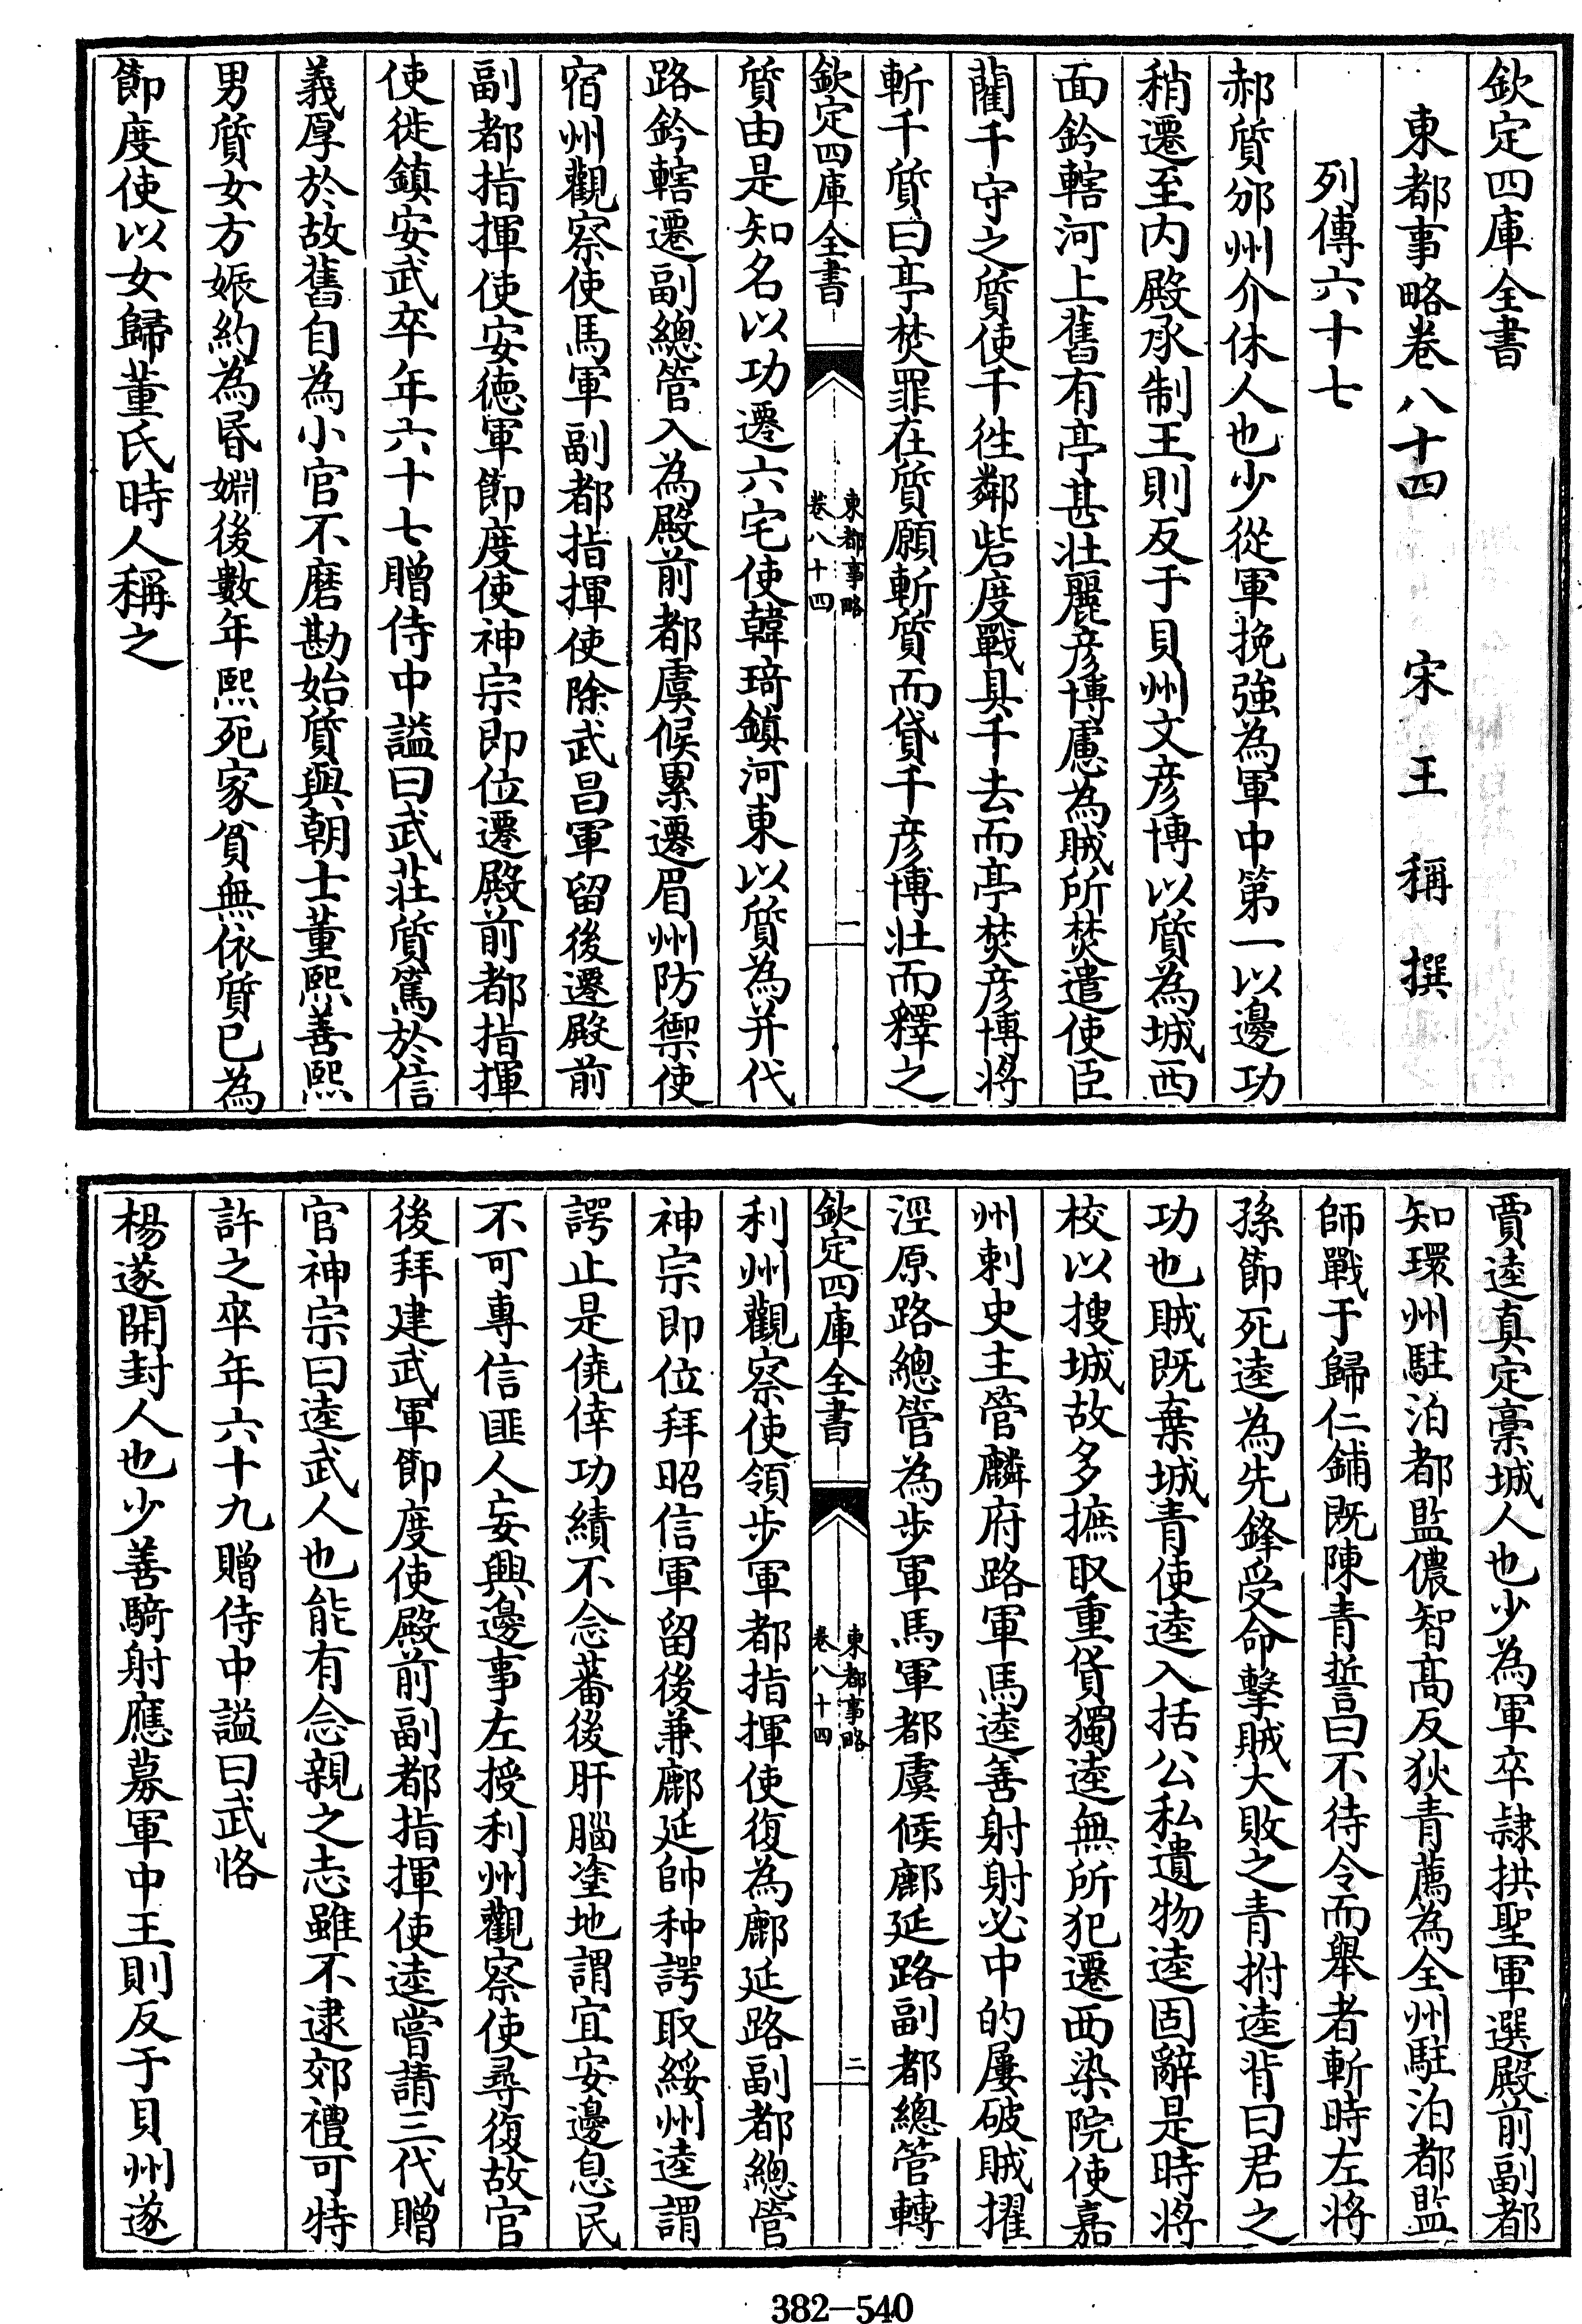 欽定四庫全書
東都事略卷八十四　宋　王　稱　撰
列傳六十七
郝質邠州介休人也少從軍挽強為軍中第一以邊功
稍遷至内殿承制王則反于貝州文彦博以質為城西
面鈐轄河上舊有亭甚壯麗彦博慮為賊所焚遣使臣
藺千守之質使千徃鄰砦度戰具千去而亭焚彦博將
斬千質曰亭焚罪在質願斬質而貸千彦博壯而釋之
欽定四庫全書
東都事略
卷八十四
一
質由是知名以功遷六宅使韓琦鎮河東以質為并代
路鈐轄遷副總管入為殿前都虞候累遷眉州防禦使
宿州觀察使馬軍副都指揮使除武昌軍留後遷殿前
副都指揮使安徳軍節度使神宗即位遷殿前都指揮
使徙鎮安武卒年六十七贈侍中謚曰武莊質篤於信
義厚於故舊自為小官不磨勘始質與朝士董熙善熙
男質女方娠約為昏婣後數年熙死家貧無依質已為
節度使以女歸董氏時人稱之
賈逵真定藁城人也少為軍卒隷拱聖軍選殿前副都
知環州駐泊都監儂智髙反狄青薦為全州駐泊都監
師戰于歸仁鋪既陳青誓曰不待令而舉者斬時左將
孫節死逵為先鋒受命擊賊大敗之青拊逵背曰君之
功也賊既棄城青使逵入括公私遺物逵固辭是時將
校以搜城故多摭取重貨獨逵無所犯遷西染院使嘉
州刺史主管麟府路軍馬逵善射射必中的屢破賊擢
涇原路總管為步軍馬軍都虞候鄜延路副都總管轉
欽定四庫全書
東都事略
卷八十四
二
利州觀察使領步軍都指揮使復為鄜延路副都總管
神宗即位拜昭信軍留後兼鄜延帥种諤取綏州逵謂
諤止是僥倖功績不念蕃後肝腦塗地謂宜安邊息民
不可專信匪人妄興邊事左授利州觀察使尋復故官
後拜建武軍節度使殿前副都指揮使逵嘗請三代贈
官神宗曰逵武人也能有念親之志雖不逮郊禮可特
許之卒年六十九贈侍中謚曰武恪
楊遂開封人也少善騎射應募軍中王則反于貝州遂
382—540